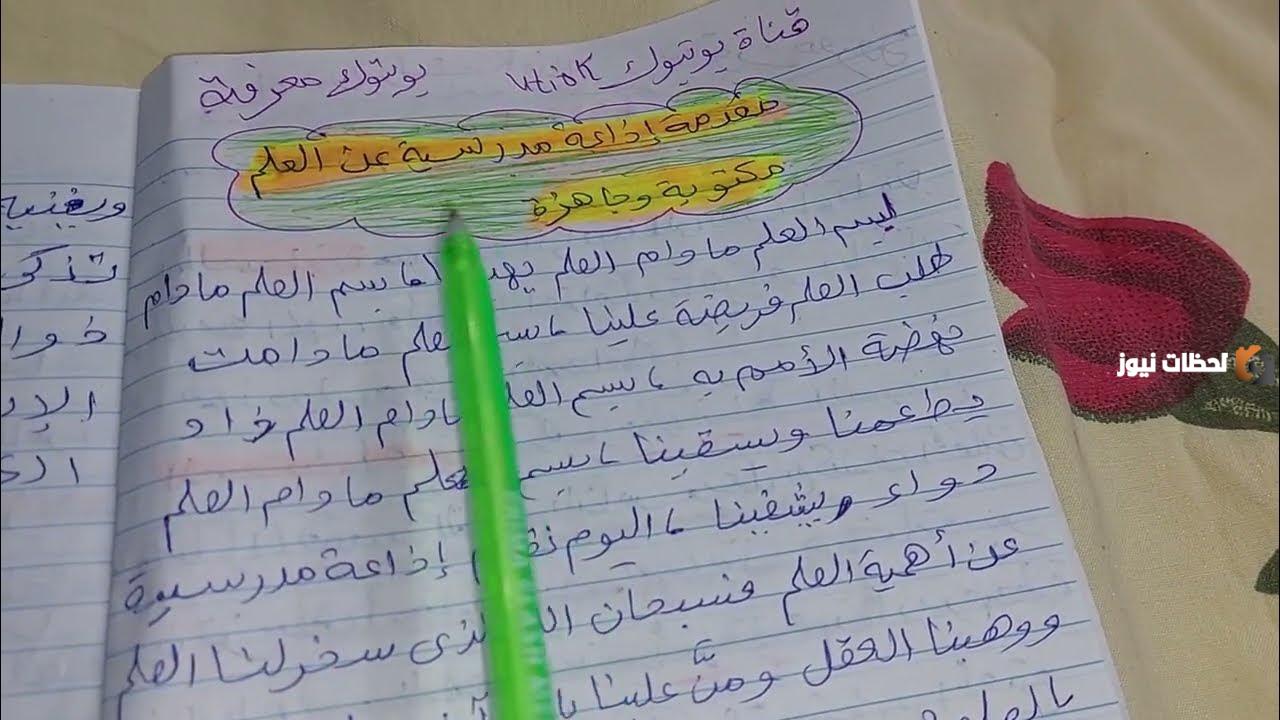 قناة يوتيوك utiok يوتوك معرفة
مقدمة إذاعة مدرسية عن العلم
مكتوبة وجاهزة
بسم العلم مادام العلم ، بسم العلم مادام
طلب العلم فريضة علينا ، بسم العلم مادامت
نهضة الأمم به ، بسم العلم مادام العلم زاد
يطعمنا ويسقينا ، بسم العلم مادام العلم
دواء ويشفينا ، اليوم إذاعة مدرسية
عن أهمية العلم فسبحان الذى سخر لنا العلم
ووهبنا العقل ومنَّ علينا
تذكر
لحظات نيوز